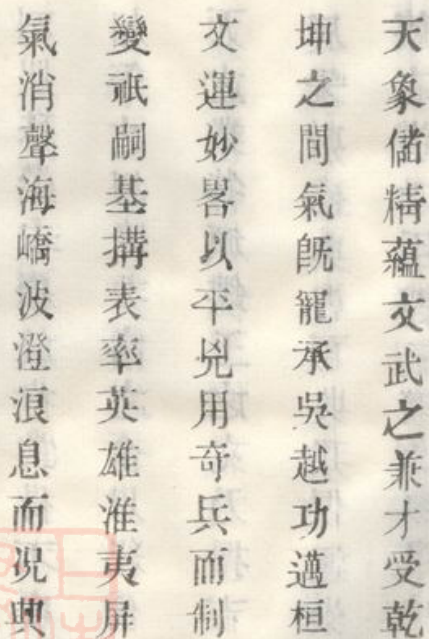 天象儲精蘊文武之兼才受乾
坤之間氣旣寵承吳越功邁桓
文運妙畧以平兇用奇兵而制
變祇嗣基搆表率英雄淮夷屏
氣消聲海嶠波澄浪息而況典